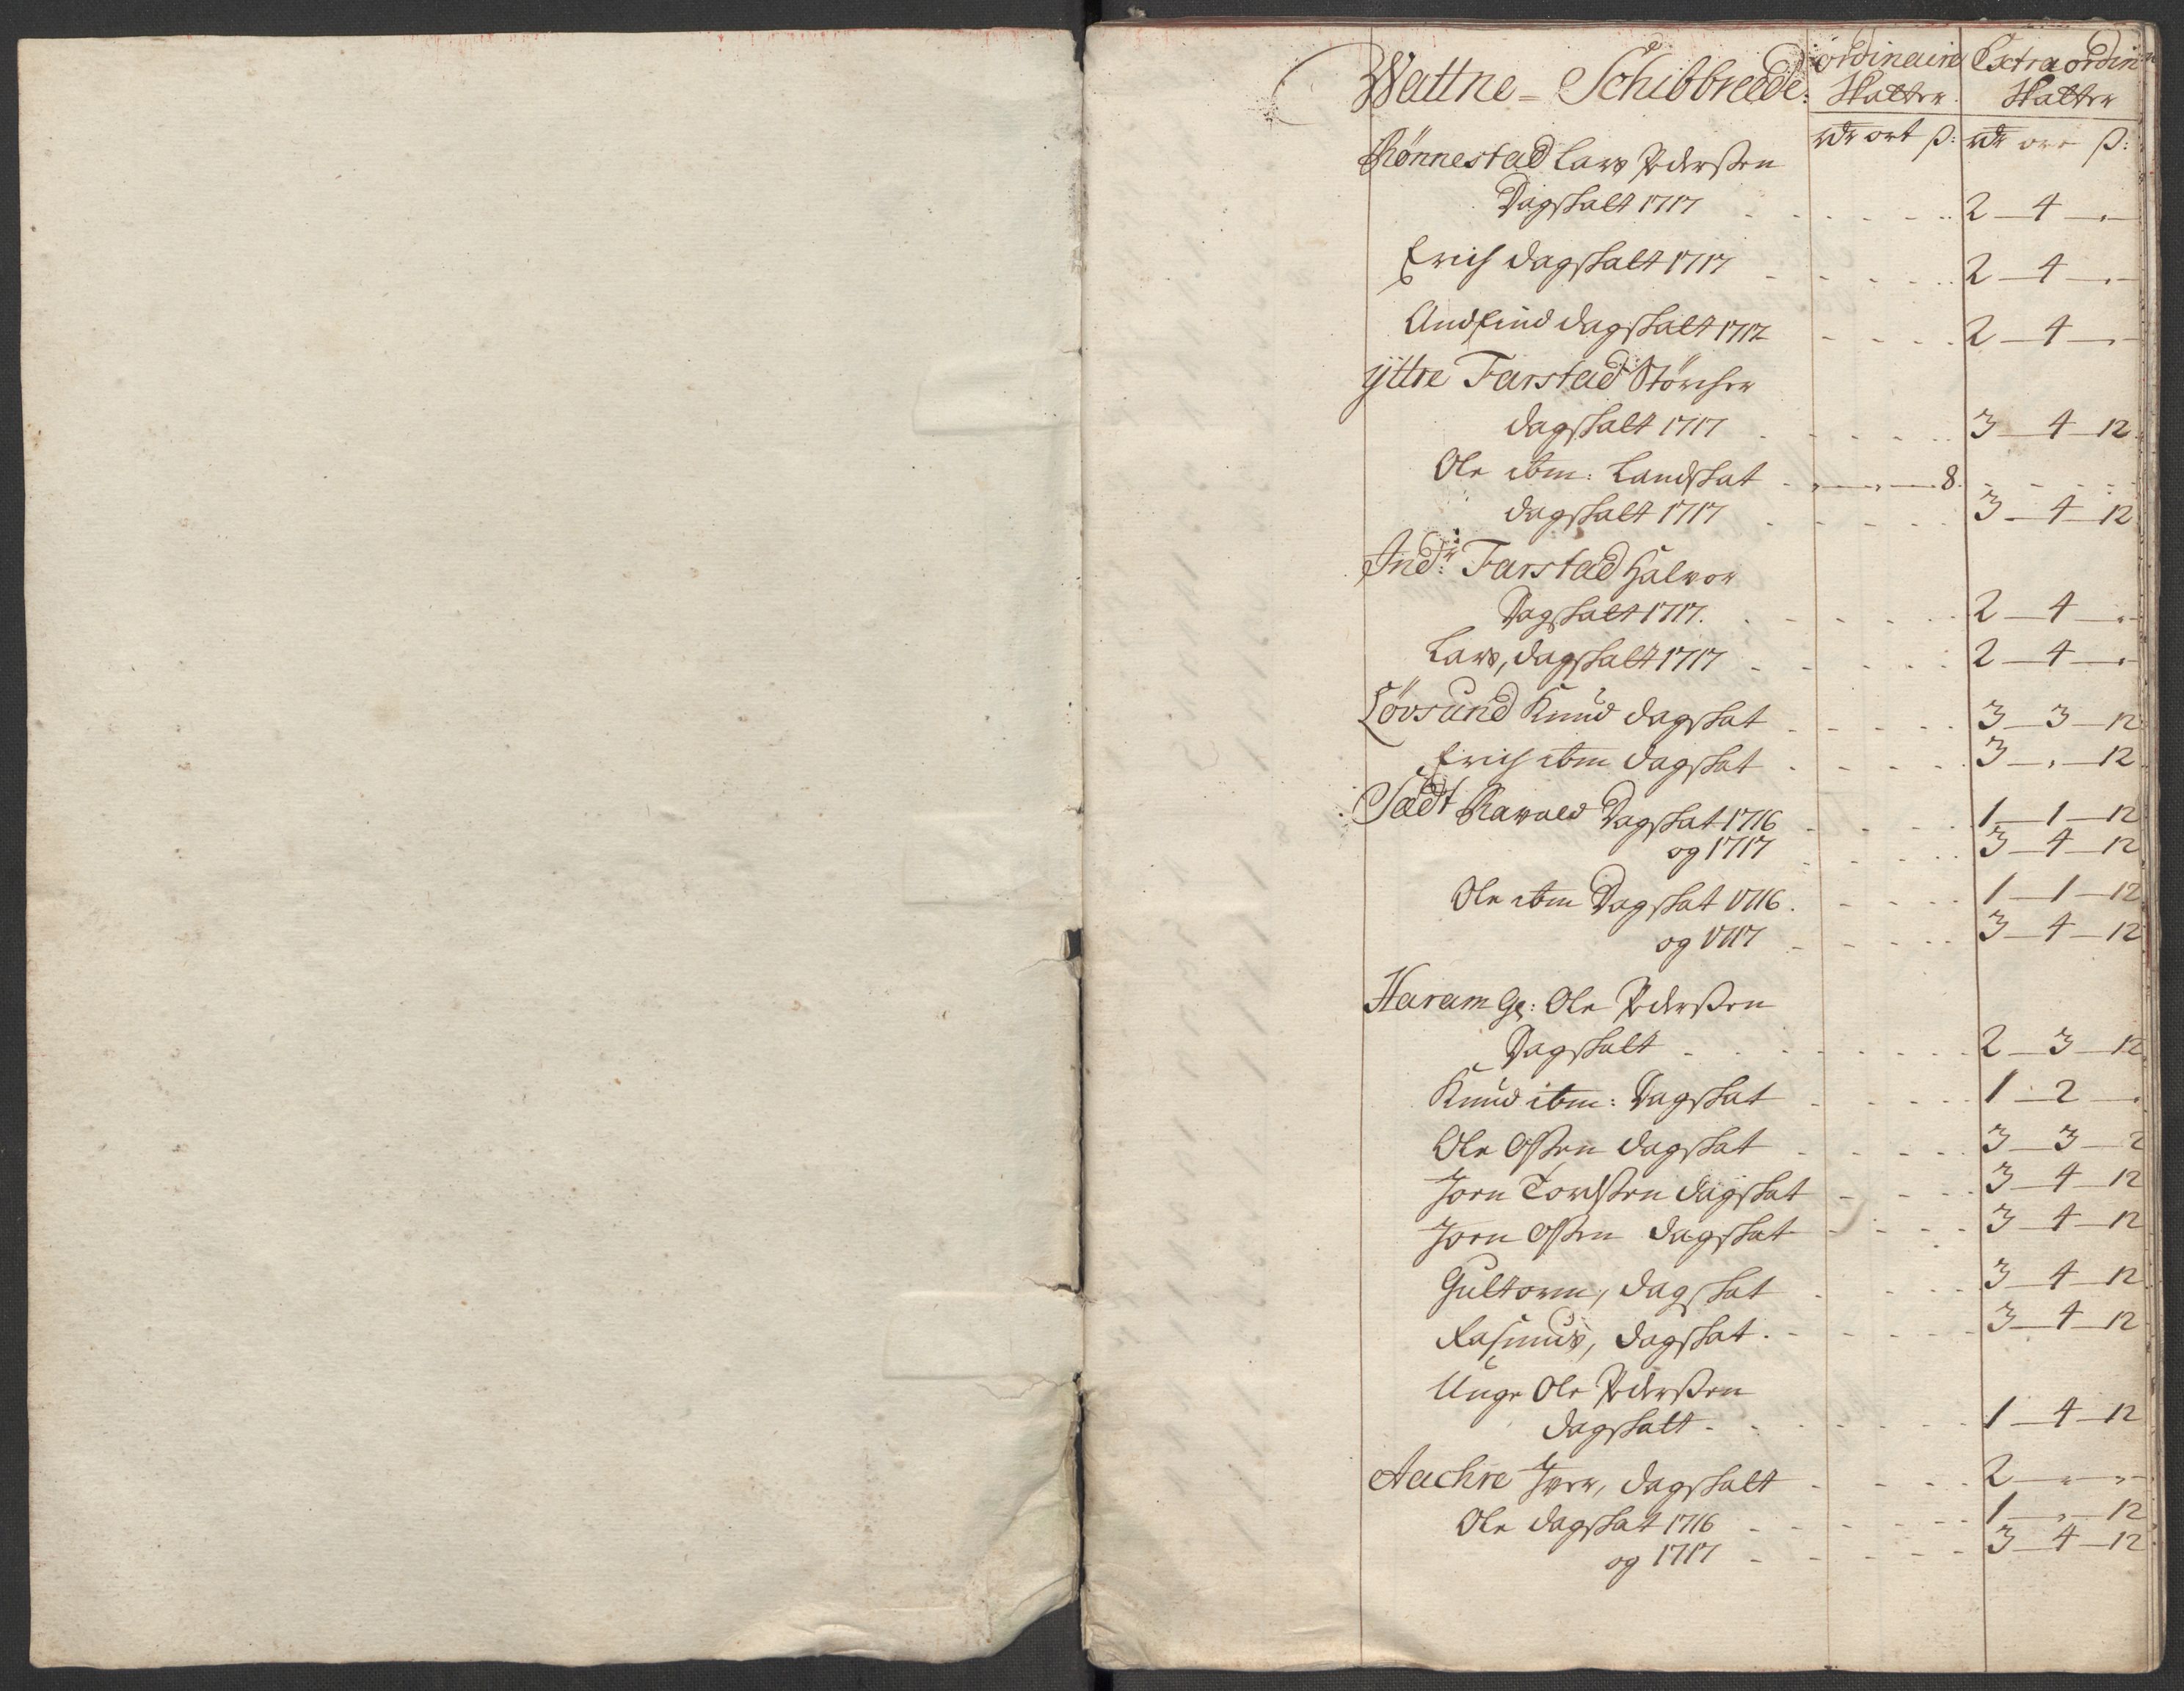 Wattne = Schibbreede:
ordinaire Extraordin
Skatter. Skatter
rdr ort ß: rdr ort ß:
Rønnestad Lars Pedersen
Dagskatt 1717 2 4
Erich dagskatt 1717 2 4
Andfind dagskatt 1717 2 4
ÿttre Farstad Størcher
dagskatt 1717 3 4 12
Ole ibm: Landskat 8.
dagskatt 1717 3 4 12
Indr: Farstad Halvor
Dagskatt 1717. 2 4
Lars, dagskatt 1717 2 4
Løvsund Knud dagskat 3 3 12
Erich ibm dagskat 3 12
Sædt Ravald Dagskat 1716 1 1 12
og 1717 3 4 12
Ole ibm Dagskat 1716. 1 1 12
og 1717 3 4 12
Haram G: Ole Pedersen
Dagskatt 2 3 12
Knud ibm: Dagskat 1 2
Ole Olsen dagskat 3 3 2
Joen Tordsen dagskat 3 4 12
Joen Olsen dagskat 3 4 12
Gultorm, dagskat 3 4 12
Rasmus, dagskat. 3 4 12
Unge Ole Pedersen
dagskatt 1 4 12
Aachre Iver, dagskatt 2
Ole dagskat 1716 1 12
og 1717 3 4 12